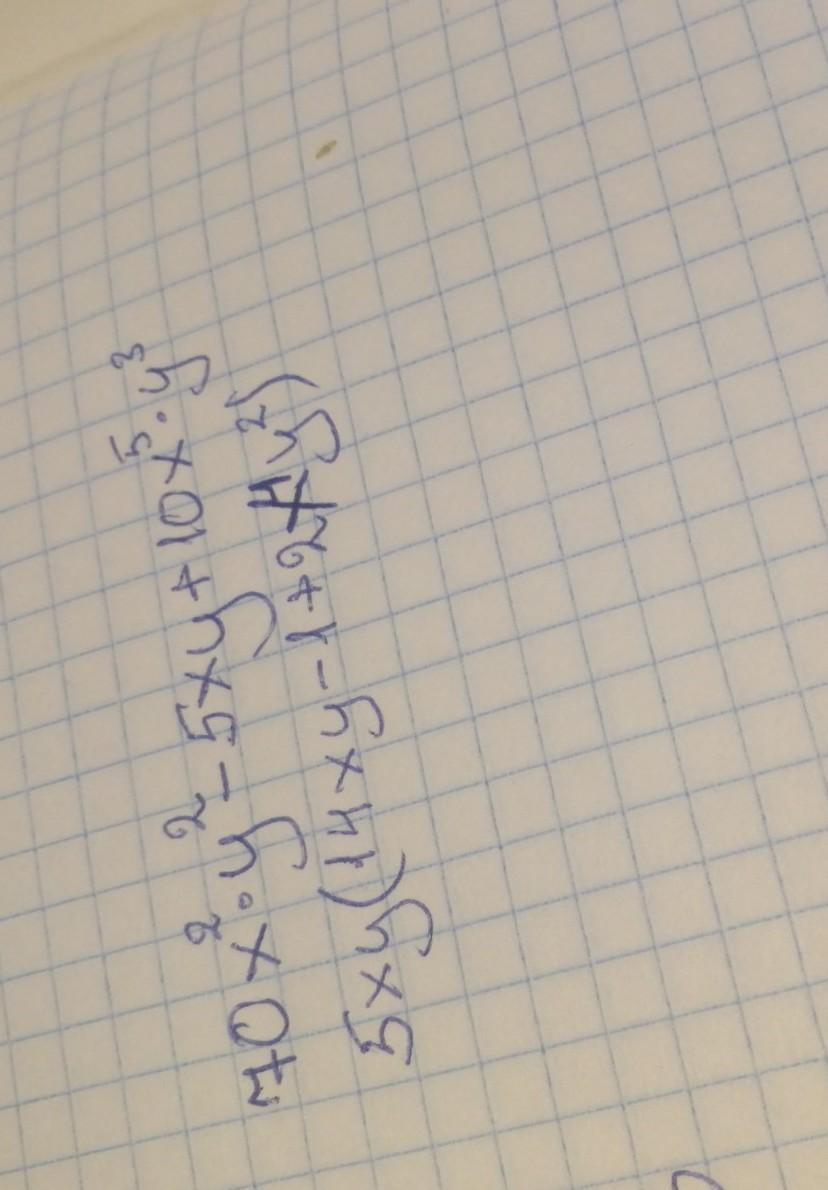 70x²·y²-5xy+10x⁵·y³
5xy(14xy-1+2x⁴y²)